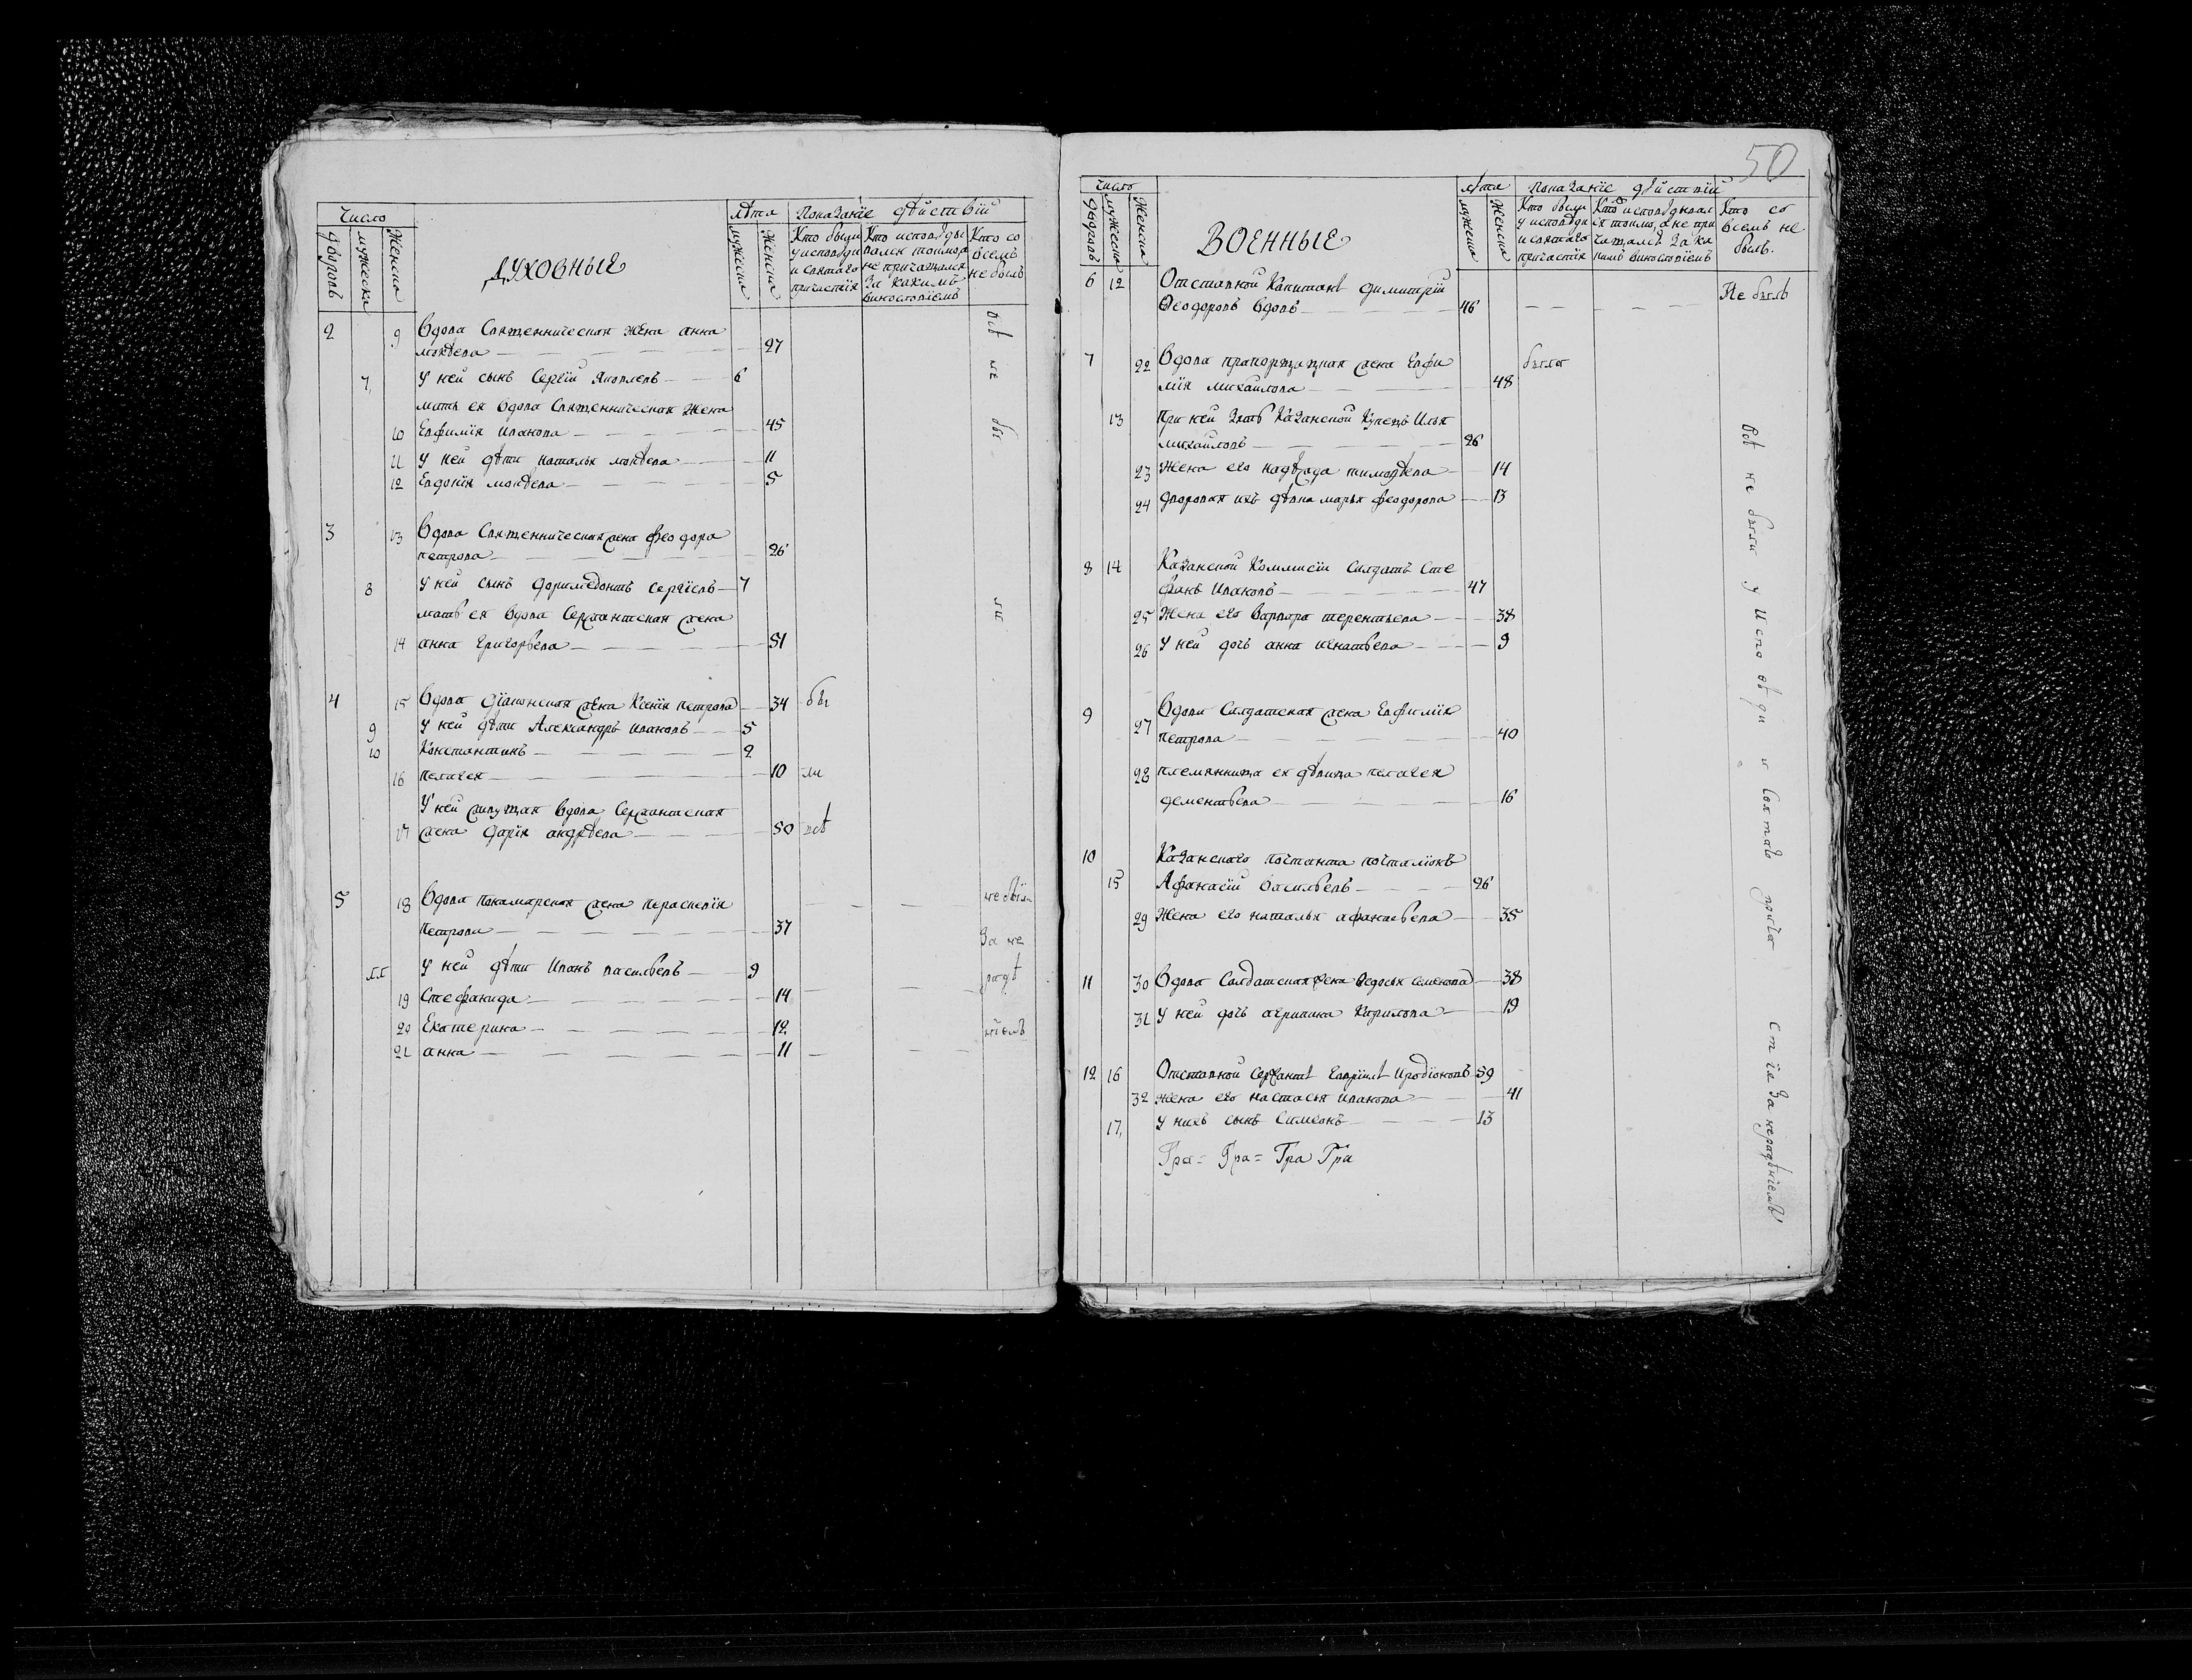 Число
лѣта
Показанїе дѣйствїи
дворовъ
мужеска
женска
ДУХОВНЫЕ
мужеска
женска
Кто были у исповѣди и святаго причастїя
Кто исповѣдывался токмо а не причащался за какимъ винословїемъ
Кто совсемъ не былъ
2 9 Вдова Священническая жена анна
моѵсѣева 27
7 У ней сынъ Сергїй Яковлевъ 6
мать ея вдова Священническая жена
10 Евфимїя Иванова 45
11 У ней дѣти наталья моѵсѣева 11
12 Евдокїя моѵсѣева 5
всѣ не бы ли
3 13 Вдова Священническая жена феодора
петрова 26
8 У ней сынъ Доримедонтъ Сергїевъ 7
мать ея вдова Сержантская жена
14 анна григорьева 51
4 15 Вдова дїаконская жена Ксенїя петрова 34 бы
9 У ней дѣти Александръ ивановъ 5
10 Константинъ 2
16 пелагея 10 ли
У ней живущая вдова Сержантская
17 жена дарїя андрѣева 50 всѣ
5 18 Вдова Понамарская жена Параскевїя не были
петрова 37 За не
11 У ней дѣти Иванъ васильевъ 9 радѣ
19 Стефанида 14
20 Екатерина 12 нїемъ
21 анна 11
50
число
лѣта
Показанїе дѣйствїи
дворовъ
мужеска
женска
ВОЕННЫЕ
мужеска
женска
Кто были у исповѣди и святаго причастїя
Кто исповѣдывался токмо, а не причащался за какимъ винословїемъ
Кто совсемъ не былъ.
6 12 Отставной Капитанъ димитрїй
Ѳеодоровъ вдовъ 46 Не былъ
7 22 Вдова прапорщицкая жена Евфи была
мїя михайлова 48
13 При ней зять Казанской Купецъ Илья
михайловъ 26
23 Жена его надѣжда тимоѳѣева 14
24 дворовая ихъ дѣвка марья феодорова 13
8 14 Казанской Коммисїи Салдатъ Сте
фанъ Ивановъ 47
25 Жена его варвара терентьева 38
26 У ней дочь анна игнатьева 9
9 27 Вдова Салдатская жена Евфимїя
петрова 40
28 племянница ея дѣвица пелагея
дементьева 16
10 Казанского почтамта почталїонъ
15 Афанасїй васильевъ 26
29 Жена его наталья афанасьева 35
11 30 Вдова Салдатская жена Ѳедосья семенова 38
31 У ней дочь агрипина Кирилова 19
12 16 Отставной Сержантъ Гаврїилъ Иродїоновъ 59
32 жена его настасья иванова 41
17 У нихъ сынъ Симеонъ 13
Гра= Гра= Гра Гра
Всѣ не были у Исповѣди и Святаго прича стїя За нерадѣнїемъ